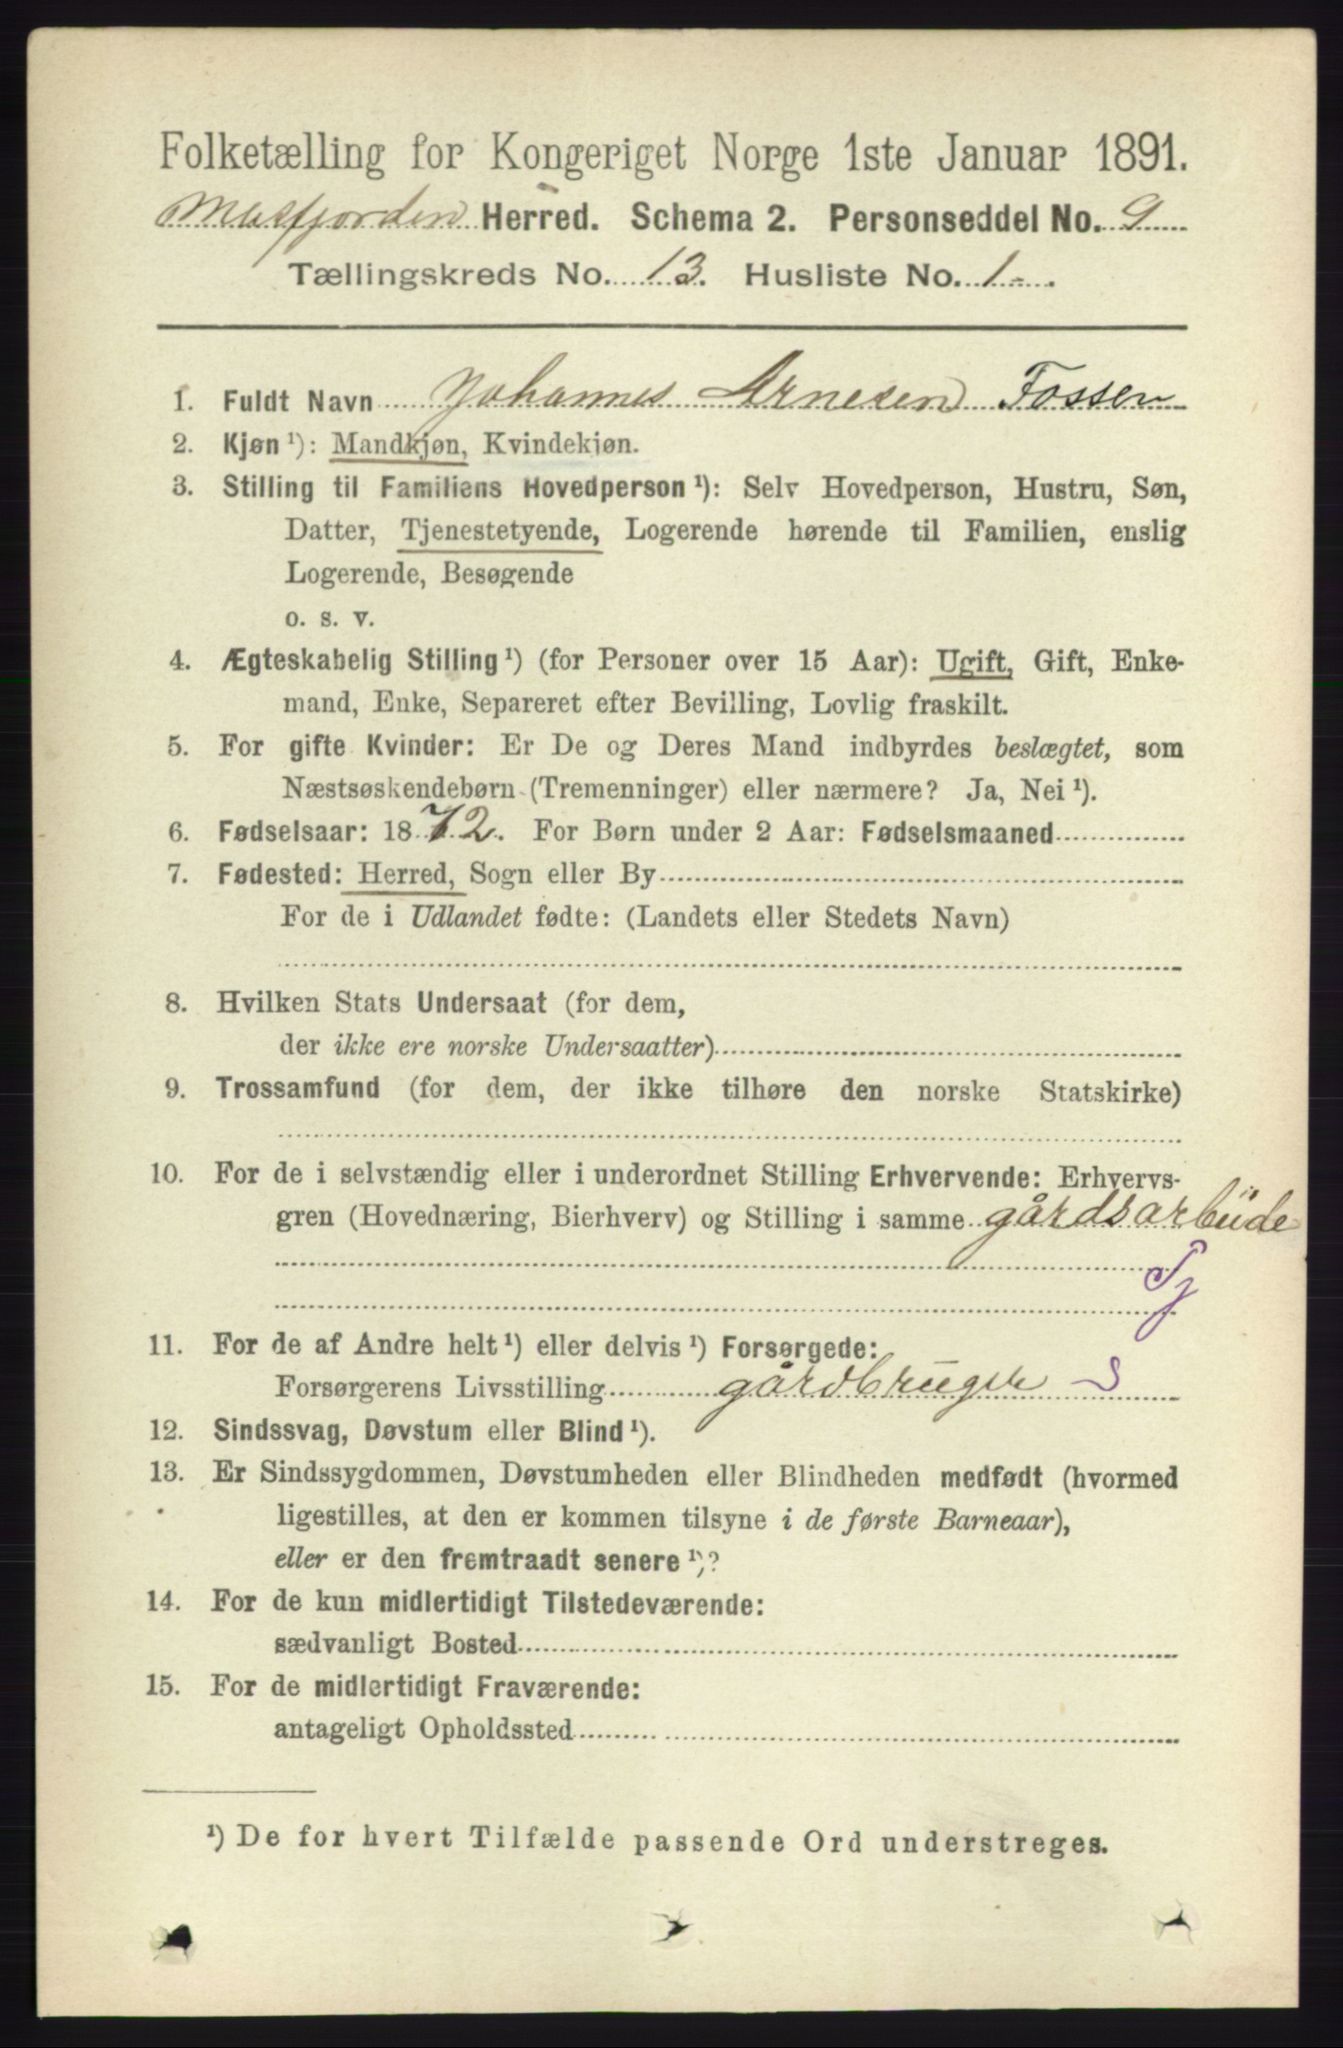 Folketælling for Kongeriget Norge 1ste Januar 1891.
Masfjorden Herred. Schema 2. Personseddel No. 9
Tællingskreds No. 13. Husliste No. 1.
1. Fuldt Navn Johannes Arnesen Fossen
2. Kjøn ¹): Mandkjøn, Kvindekjøn.
3. Stilling til Familiens Hovedperson ¹): Selv Hovedperson, Hustru, Søn,
Datter, Tjenestetyende, Logerende hørende til Familien, enslig
Logerende, Besøgende
o. s. v.
4. Ægteskabelig Stilling ¹) (for Personer over 15 Aar): Ugift, Gift, Enke-
mand, Enke, Separeret efter Bevilling, Lovlig fraskilt.
5. For gifte Kvinder: Er De og Deres Mand indbyrdes beslægtet, som
Næstsøskendebørn (Tremenninger) eller nærmere? Ja, Nei ¹).
6. Fødselsaar: 1872. For Børn under 2 Aar: Fødselsmaaned
7. Fødested: Herred, Sogn eller By
For de i Udlandet fødte: (Landets eller Stedets Navn)
8. Hvilken Stats Undersaat (for dem,
der ikke ere norske Undersaatter)
9. Trossamfund (for dem, der ikke tilhøre den norske Statskirke)
10. For de i selvstændig eller i underordnet Stilling Erhvervende: Erhvervs-
gren (Hovednæring, Bierhverv) og Stilling i samme gårdsarbüde
Tj
11. For de af Andre helt ¹) eller delvis ¹) Forsørgede:
Forsørgerens Livsstilling gårdbruger S
12. Sindssvag, Døvstum eller Blind ¹).
13. Er Sindssygdommen, Døvstumheden eller Blindheden medfødt (hvormed
ligestilles, at den er kommen tilsyne i de første Barneaar),
eller er den fremtraadt senere ¹)?
14. For de kun midlertidigt Tilstedeværende:
sædvanligt Bosted
15. For de midlertidigt Fraværende:
antageligt Opholdssted
¹) De for hvert Tilfælde passende Ord understreges.